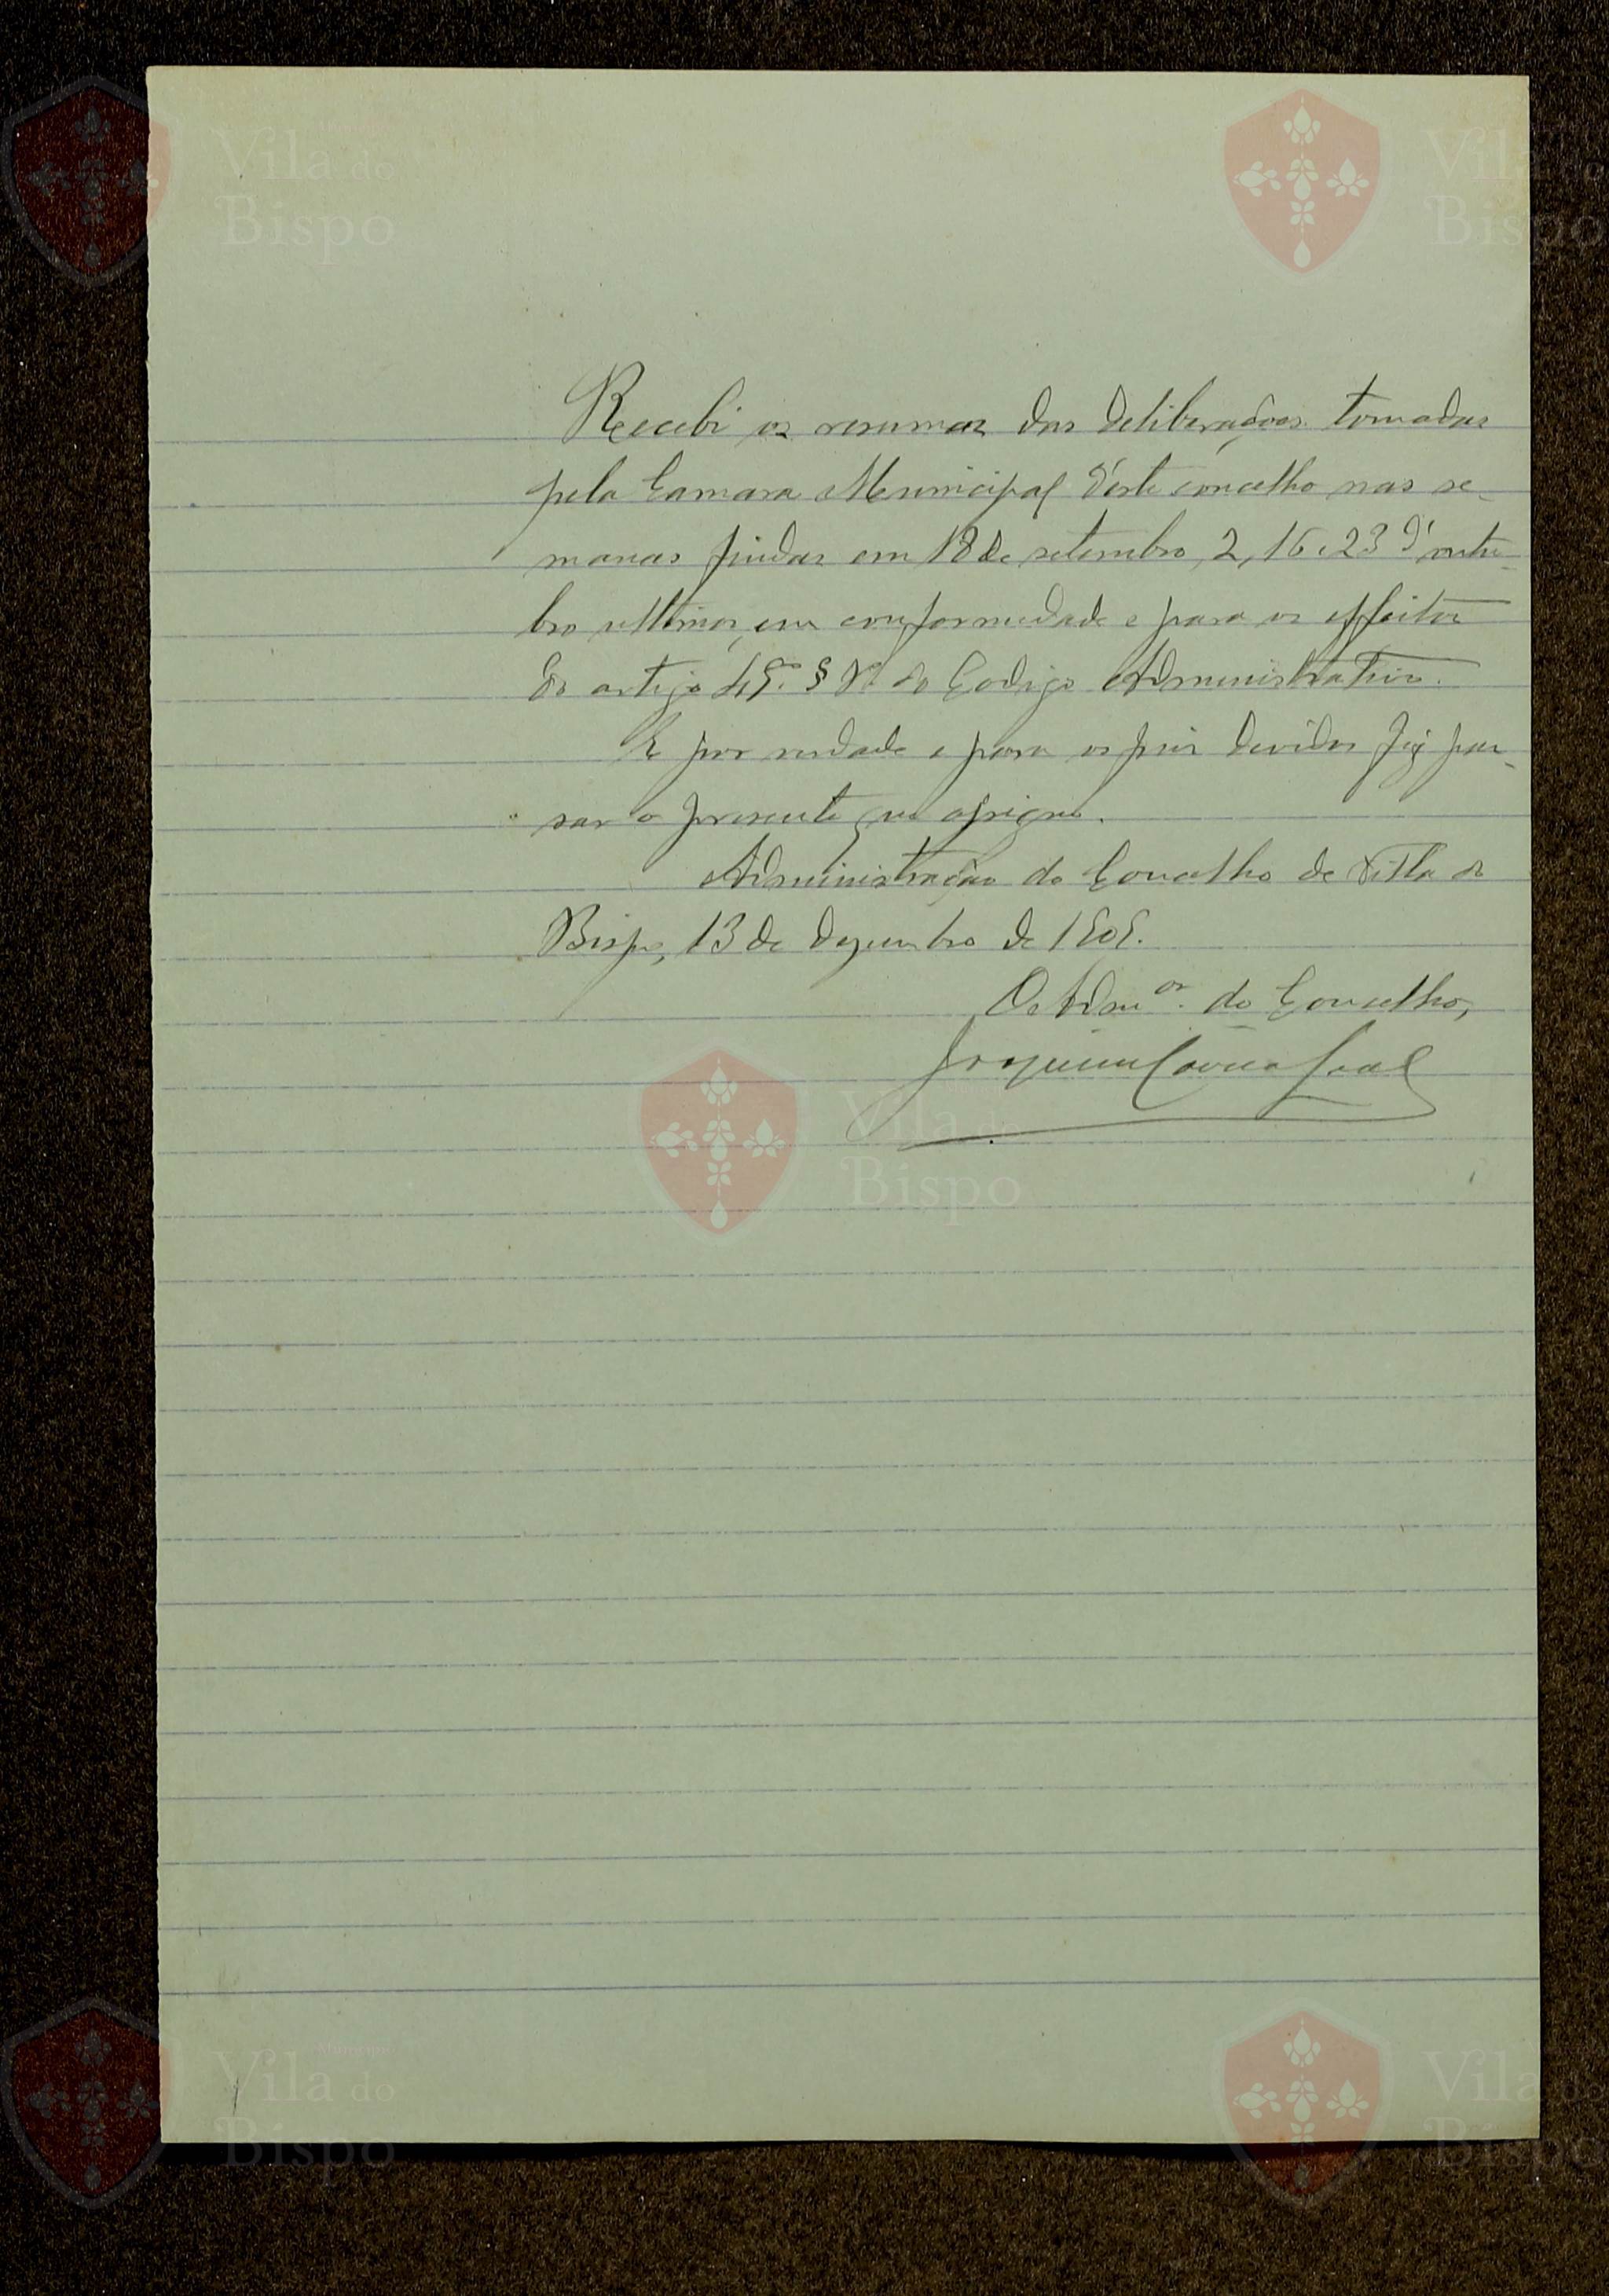 Vila do
Bispo
Vila do
Bispo
Recebi os resumos das deliberações tomadas
pela Camara Municipal d'este concelho nas se-
manas findas em 18 de setembro, 2, 16 e 23 d'outu-
bro ultimos, em conformidade e para os effeitos
do artigo 49.º § do Codigo Administrativo.
E por verdade e para os fins devidos fiz pas-
sar o presente que assigno.
Administração do Concelho de Villa do
Bispo, 13 de dezembro de 1909.
O Adm.or do Concelho,
Joaquim Correa Leal
Vila do
Bispo
Município
Vila do
Bispo
Vila do
Bispo